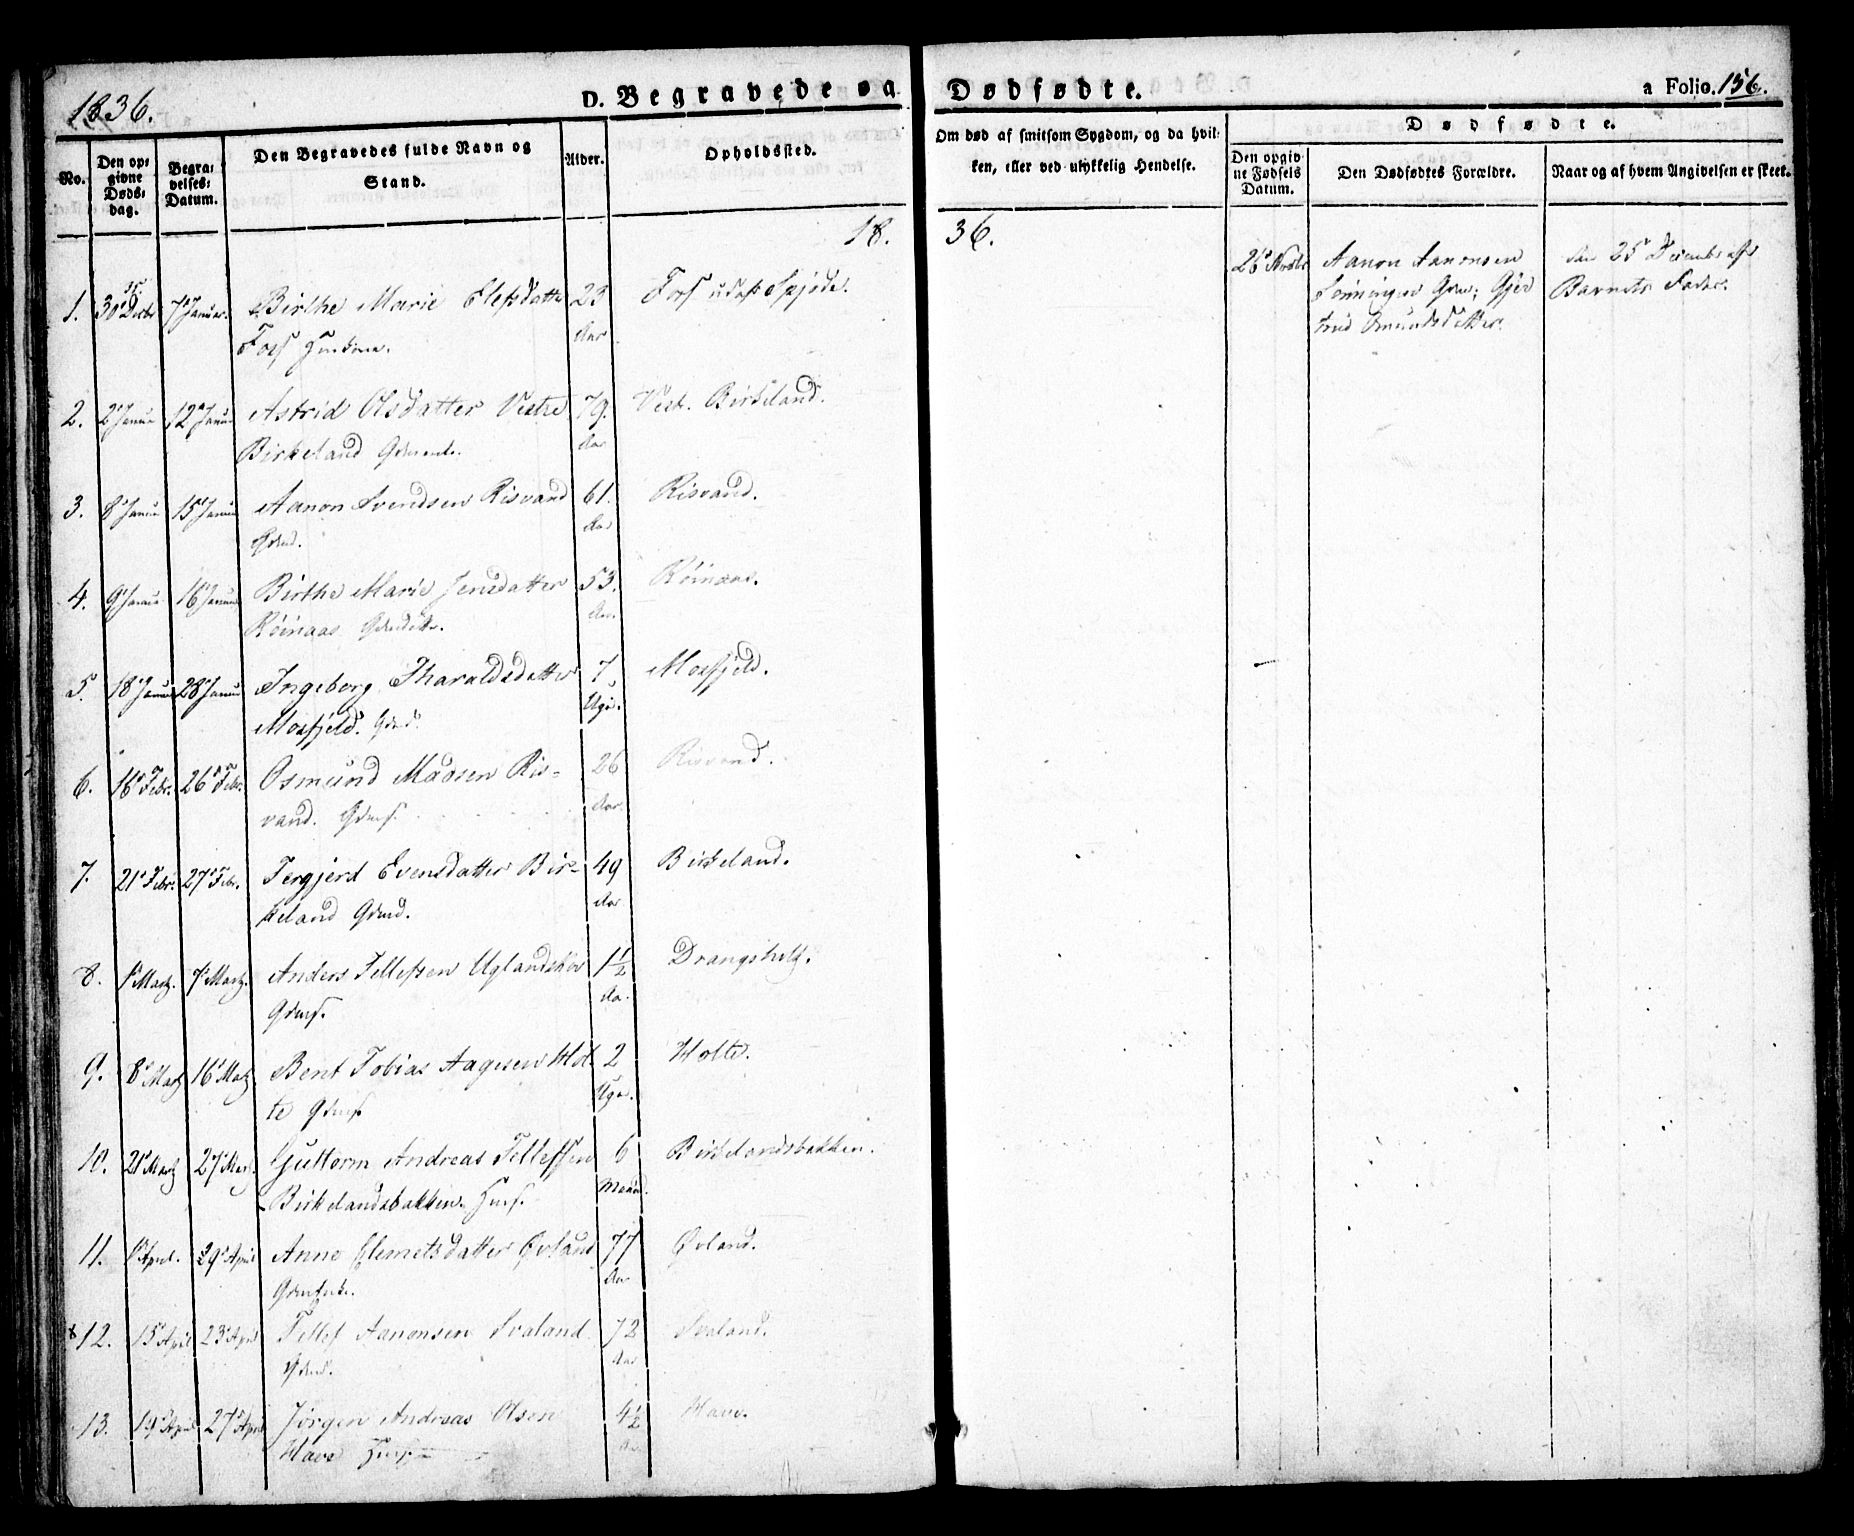 1836.
D. Begravede og Dødfødte.
a Folio. 156.
No.
Den opgivne Døds-dag.
Begravelses-Datum.
Den Begravedes fulde Navn og Stand.
Alder.
Opholdssted.
Om død af smitsom Sygdom, og da hvilken, eller ved ulykkelig Hendelse.
Dødfødte.
Den opgivne Fødsels Datum.
Den Dødfødtes Forældre.
Naar og af hvem Angivelsen er skeet.
1836.
1. 30 Decbr 7 Januar. Birthe Marie 23
Foss
Aar
2. 2 Januar 12 Januar Astrid Olsdatter Vestre 79. Vest. Birkeland.
Birkeland
Aar
3. 8 Januar 15 Januar Aanon Svendsen Risvand 61. Risvand.
Aar
4. 9 Januar 16 Januar Birthe Marie Jensdatter 53. Röinaas.
Röinaas
Aar
5. 18 Januar 28 Januar Ingeborg Tharaldsdatter 7 Mosfjeld.
Mosfjeld.
Uger.
6. 16 Febr. 26 Febr. Osmund Madsen Ris- 26 Risvand.
vand.
Aar.
7. 21 Febr. 27 Febr. Tergjerd Evensdatter Bir- 49 Birkeland.
keland
Aar
8. 1 Martz. 7 Martz. Anders Tellefsen 1½ Drangsholt.
Aar.
9. 8 Martz 16 Martz Bent Tobias Aagesen Hol- 2 Holte.
te
Uger.
10. 21 Martz 27 Martz Guttorm Andreas Tellefsen 6 Birkelandsbakken.
Birkelandsbakken.
11. 1 April. 29 April Anne Clemetsdatter Øvland 77 Øvland.
Aar
12. 15 April 23 April Tellef Aanonsen Svaland 72 Svaland.
Aar
13. 19 April 27 April Jörgen Andreas Olsen 4½ Have.
Have
Aar
Aanon Aanonsen
den 25 Decembr af
Barnets Fader.